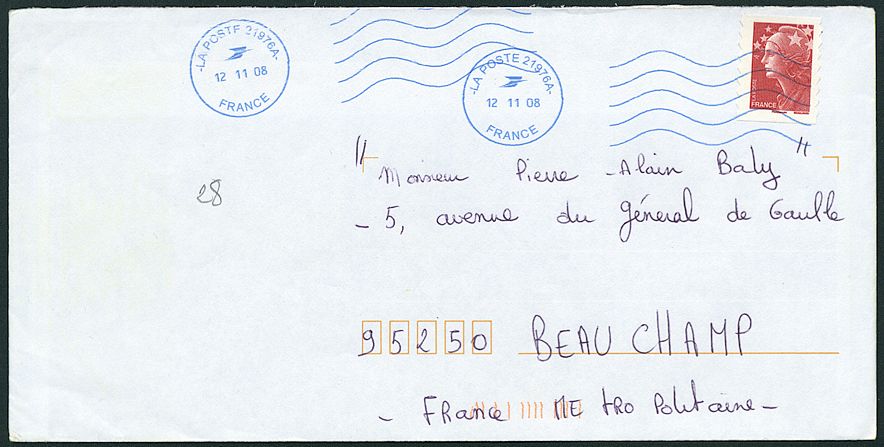 LA POSTE 21976A
12 11 08
FRANCE
LA POSTE 21976A
12 11 08
FRANCE
FRANCE
28
" Monsieur Pierre-Alain Baly "
- 5, avenue du Général de Gaulle
95250 BEAUCHAMP
- FRANCE METROPolitaine -